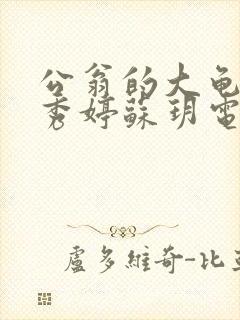 公翁的大龟
秀婷蘇玥電
盧多維奇-比亞